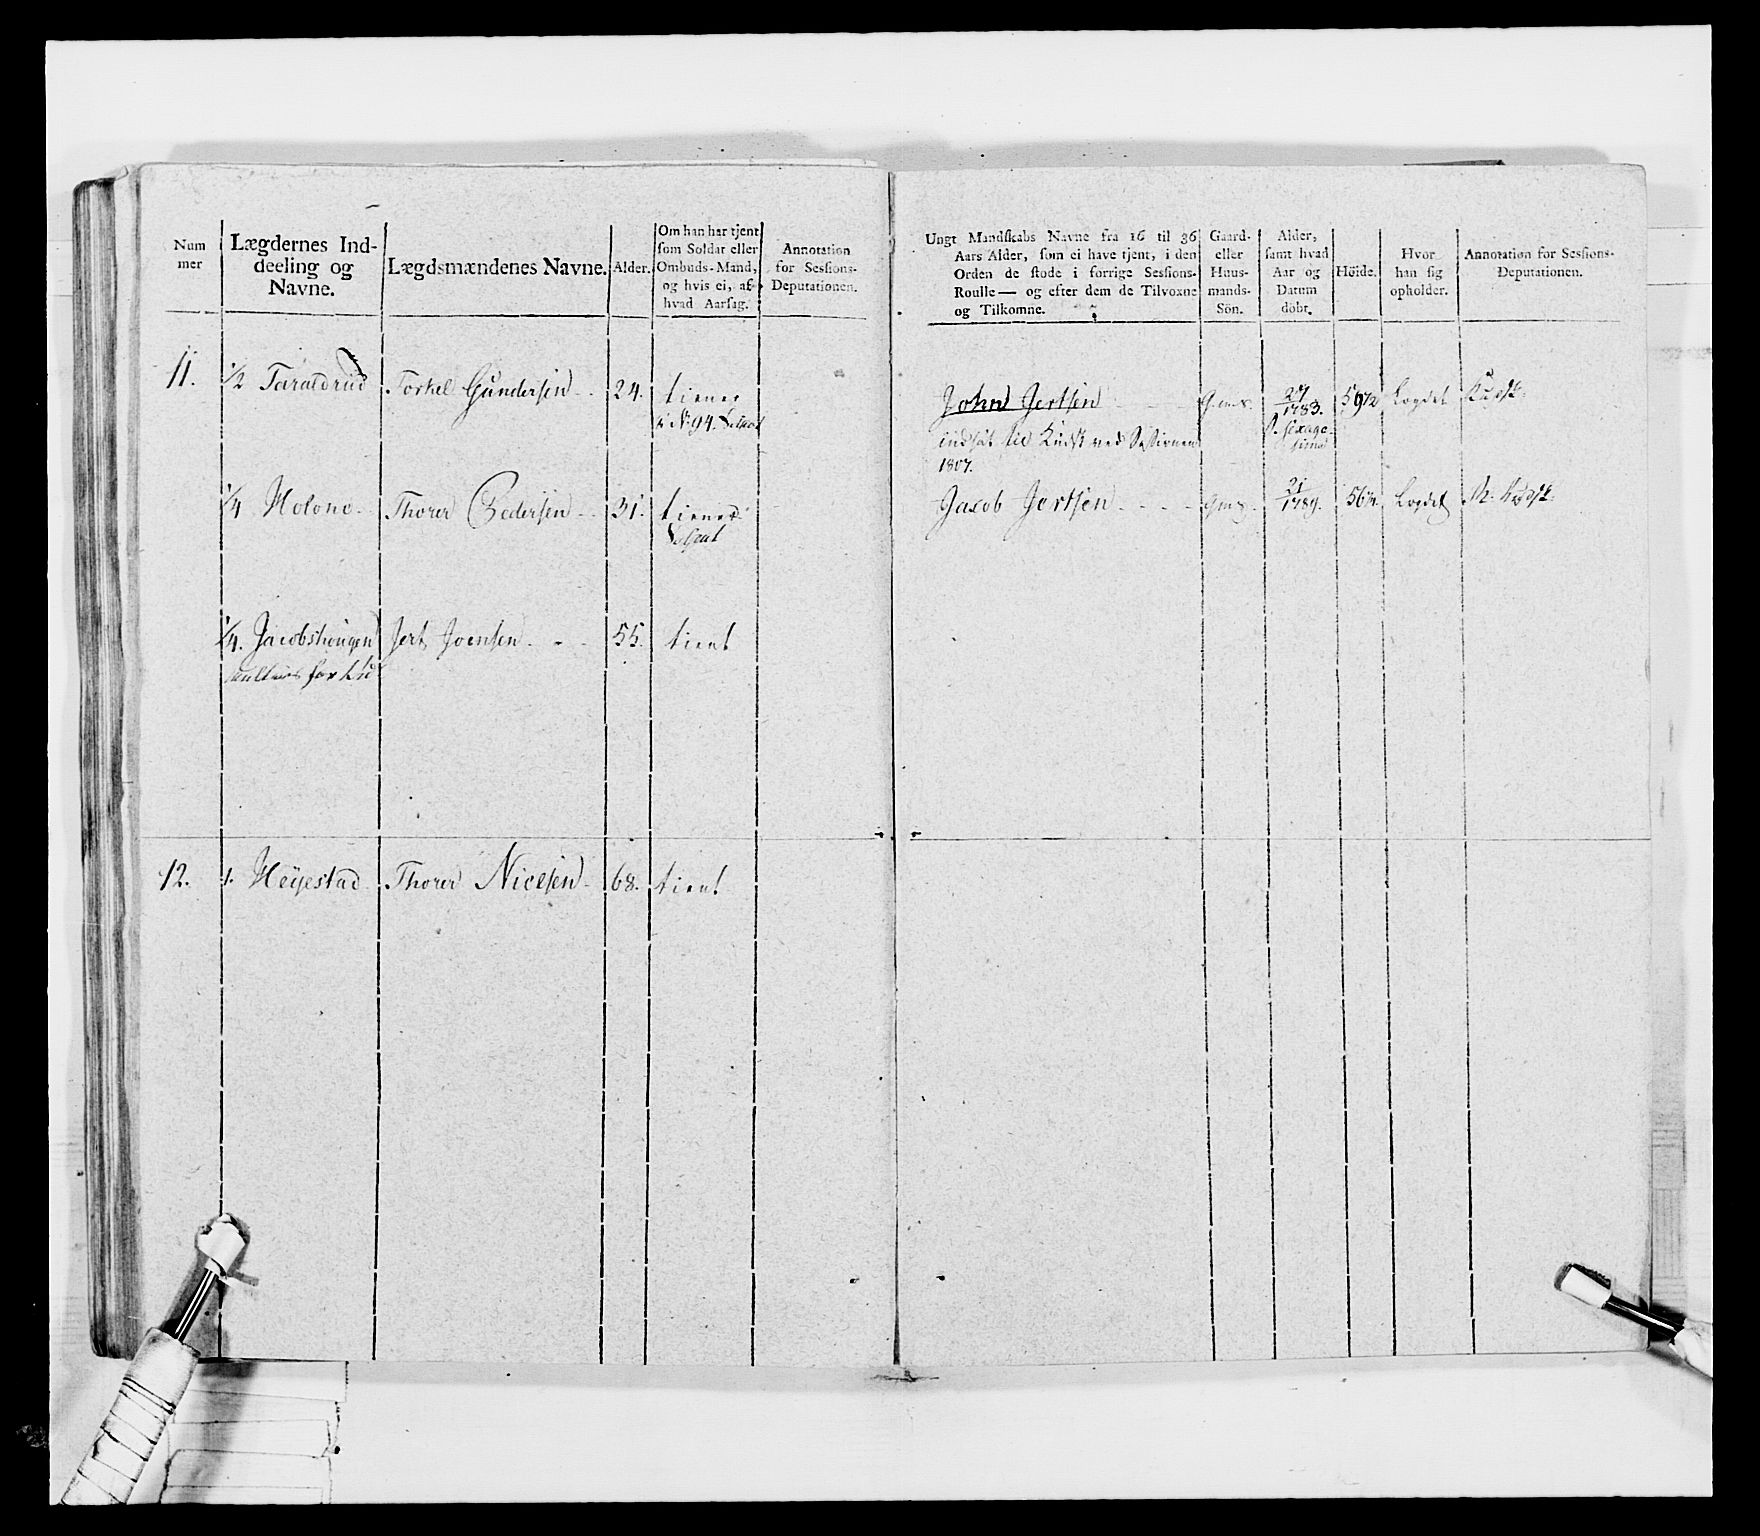 Num
mer
Lægdernes Ind-
deeling og
Navne.
Lægdsmændenes Navne.
Alder.
Om han har tjent
som Soldat eller
Ombuds-Mand,
og hvis ei, af
hvad Aarsag.
Annotation
for Sessions-
Deputationen.
Ungt Mandskabs Navne fra 16 til 36
Aars Alder, som ei have tjent, i den
Orden de stode i forrige Sessions-
Roulle — og efter dem de Tilvoxne
og Tilkomne.
Gaard-
eller
Huus-
mands-
Sön.
Alder,
samt hvad
Aar og
Datum
döbt.
Höide.
Hvor
han sig
opholder.
Annotation for Sessions-
Deputationen.
11. 1/2 Taraldrud Torkel Gundersen 24. tiener
i No 94.
John Jertsen G.m.s. 27/1783. 59 1/2 Logdet Kudsk.
S. sexage
sima
indsat til Kudsk ved Sessionen
1807.
1/4 Molone Thorer Pedersen 31. tiener
Jacob Jertsen G.m.s. 21/1789. Logdet Kudsk.
1/4. Jacobshougen Jert Joensen 55. tient
12. 1. Heyestad Thorer Nielsen 68. tient